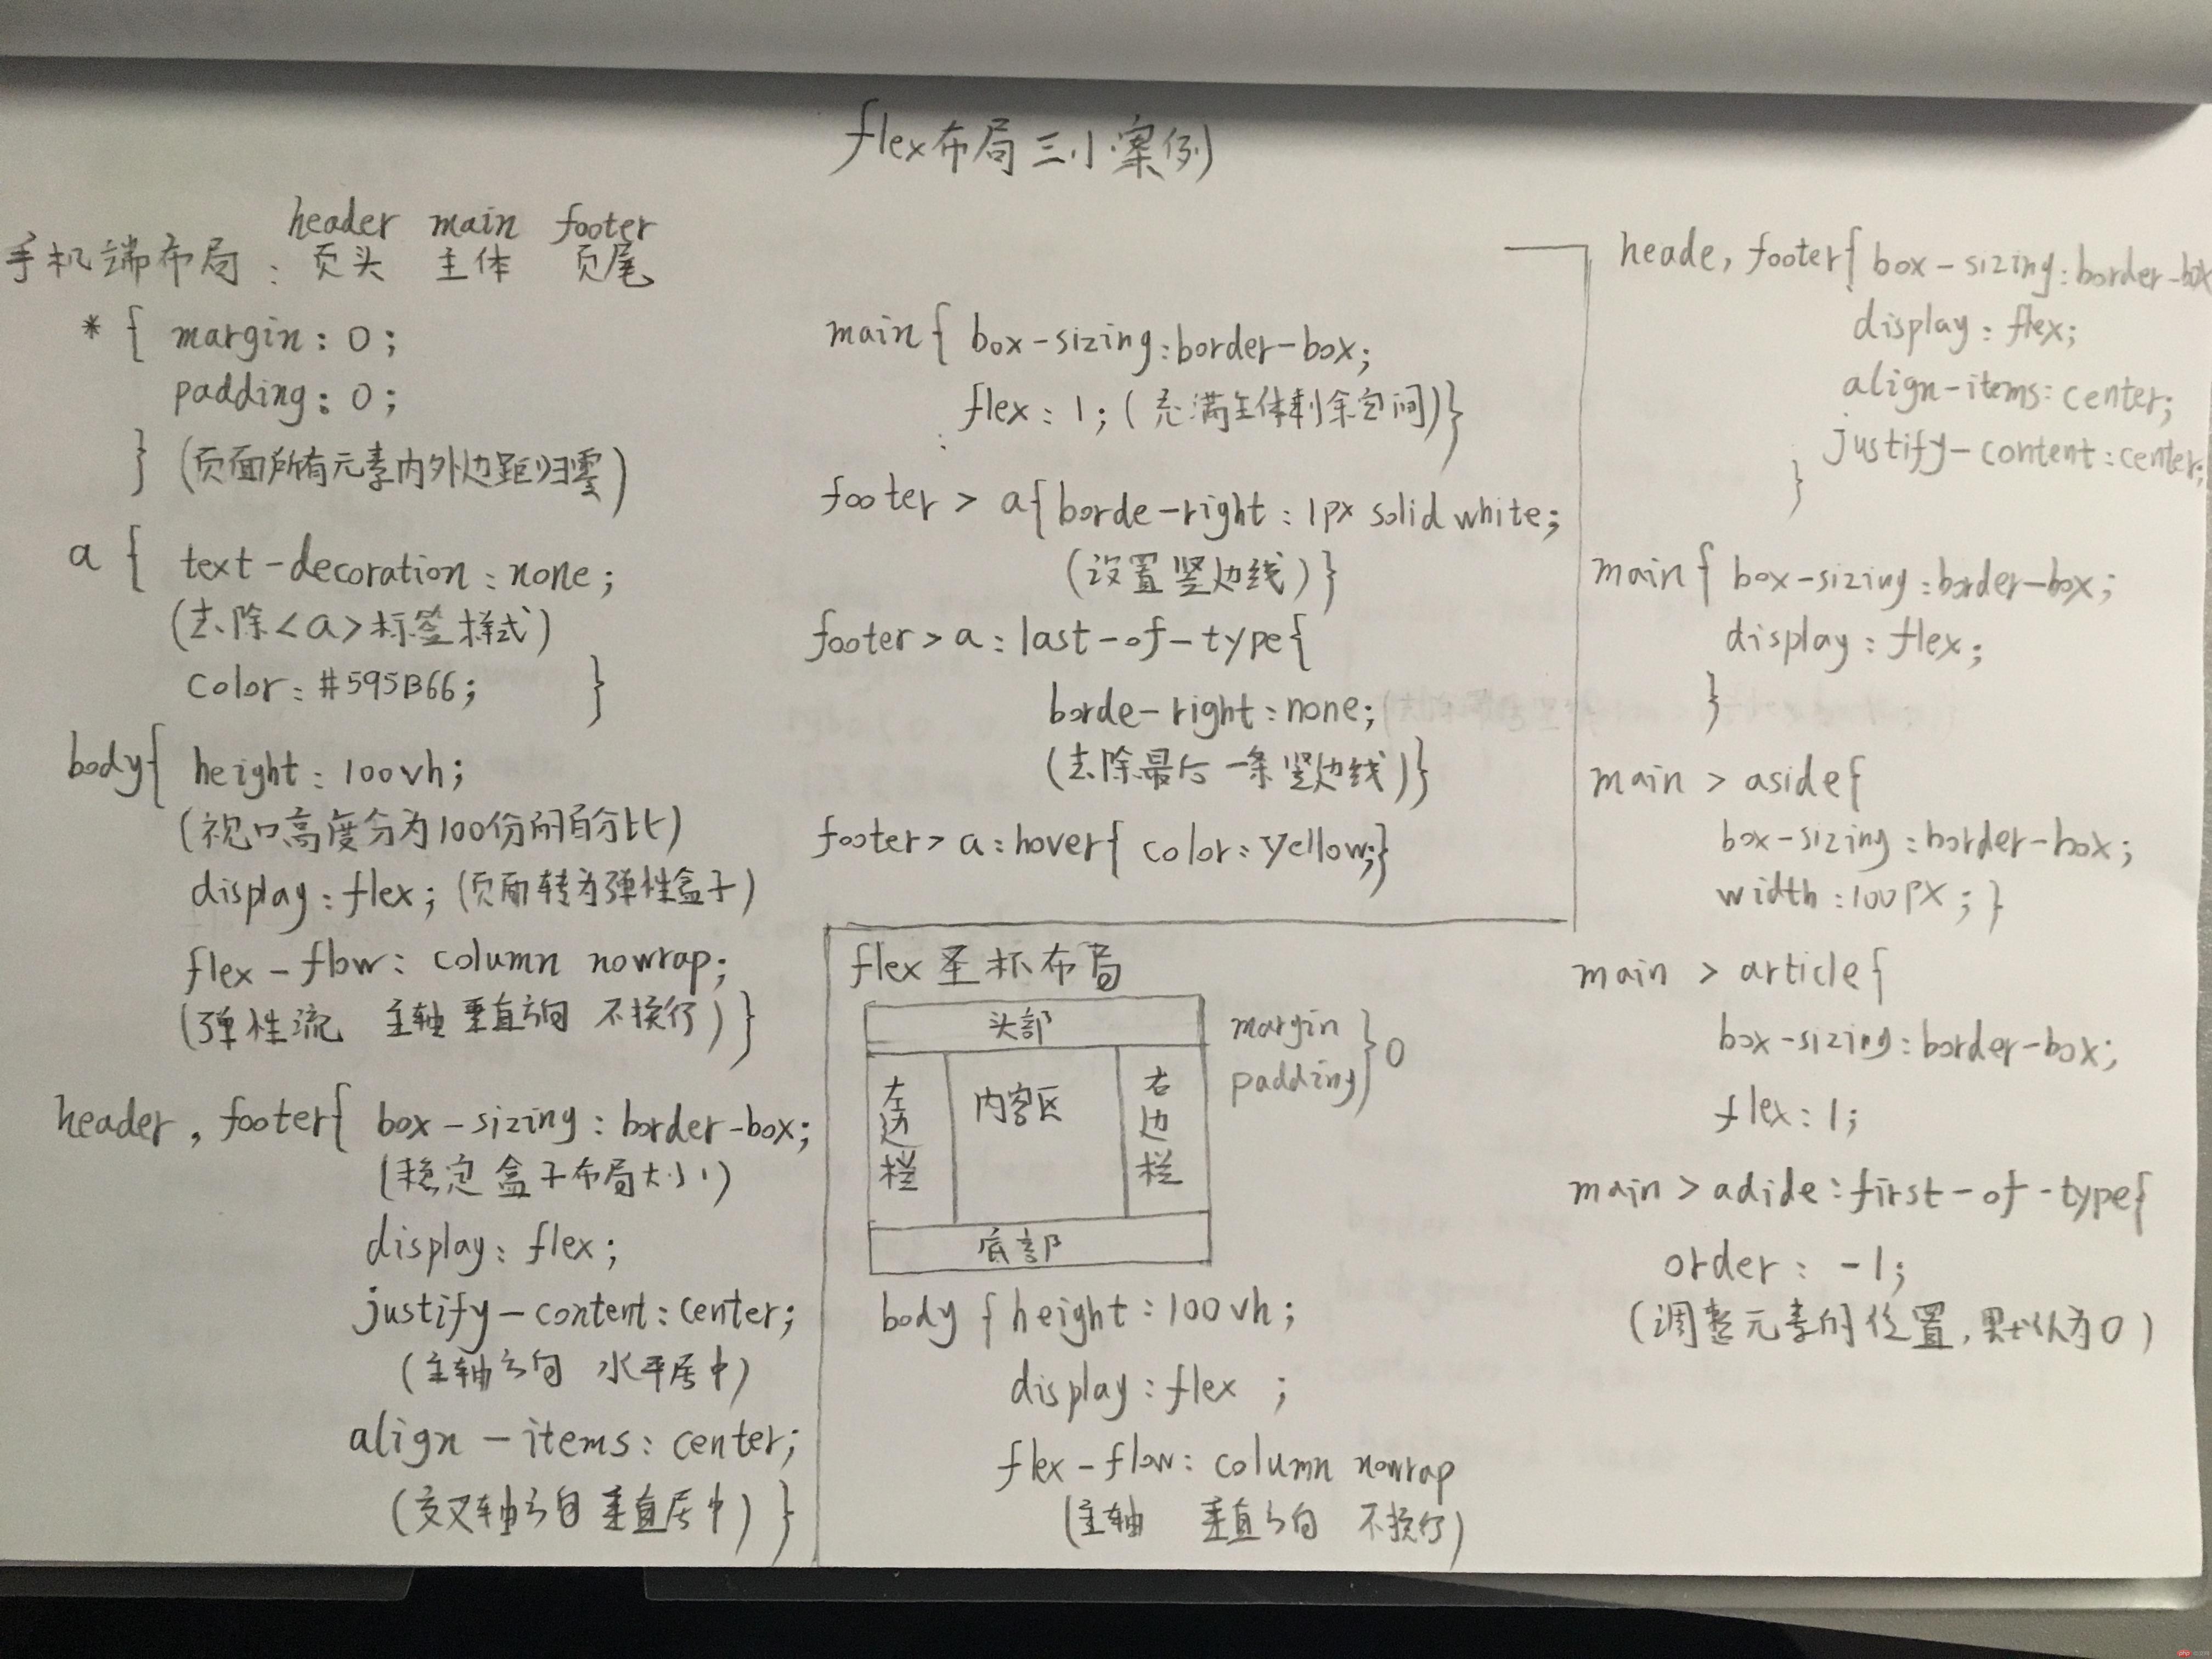 flex布局三小案例
header main footer
手机端布局：页头 主体 页尾
* { margin: 0;
padding: 0;
} (页面所有元素内外边距归零)
a { text-decoration: none;
(去除<a>标签样式)
color: #595B66; }
body{ height: 100vh;
(视口高度分为100份的百分比)
display: flex; (页面转为弹性盒子)
flex-flow: column nowrap;
(弹性流 主轴垂直方向 不换行) }
header, footer{ box-sizing: border-box;
(稳定盒子布局大小)
display: flex;
justify-content: center;
(主轴方向 水平居中)
align-items: center;
(交叉轴方向 垂直居中) }
main{ box-sizing: border-box;
flex: 1; (充满主体剩余空间)}
footer > a{ borde-right: 1px solid white;
(设置竖边线)}
footer > a: last-of-type{
borde-right: none;
(去除最后一条竖边线)}
footer > a: hover{ color: yellow;}
flex 圣杯布局
头部
左边栏
内容区
右边栏
底部
margin
padding } 0
body { height: 100vh;
display: flex ;
flex-flow: column nowrap
(主轴 垂直方向 不换行)
heade, footer{ box-sizing: border-box
display: flex;
align-items: center;
justify-content: center;
}
main{ box-sizing: border-box;
display: flex;
}
main > aside{
box-sizing: border-box;
width: 100PX; }
main > article{
box-sizing: border-box;
flex: 1;
main > adide: first-of-type{
order: -1;
(调整元素的位置,默认为0)